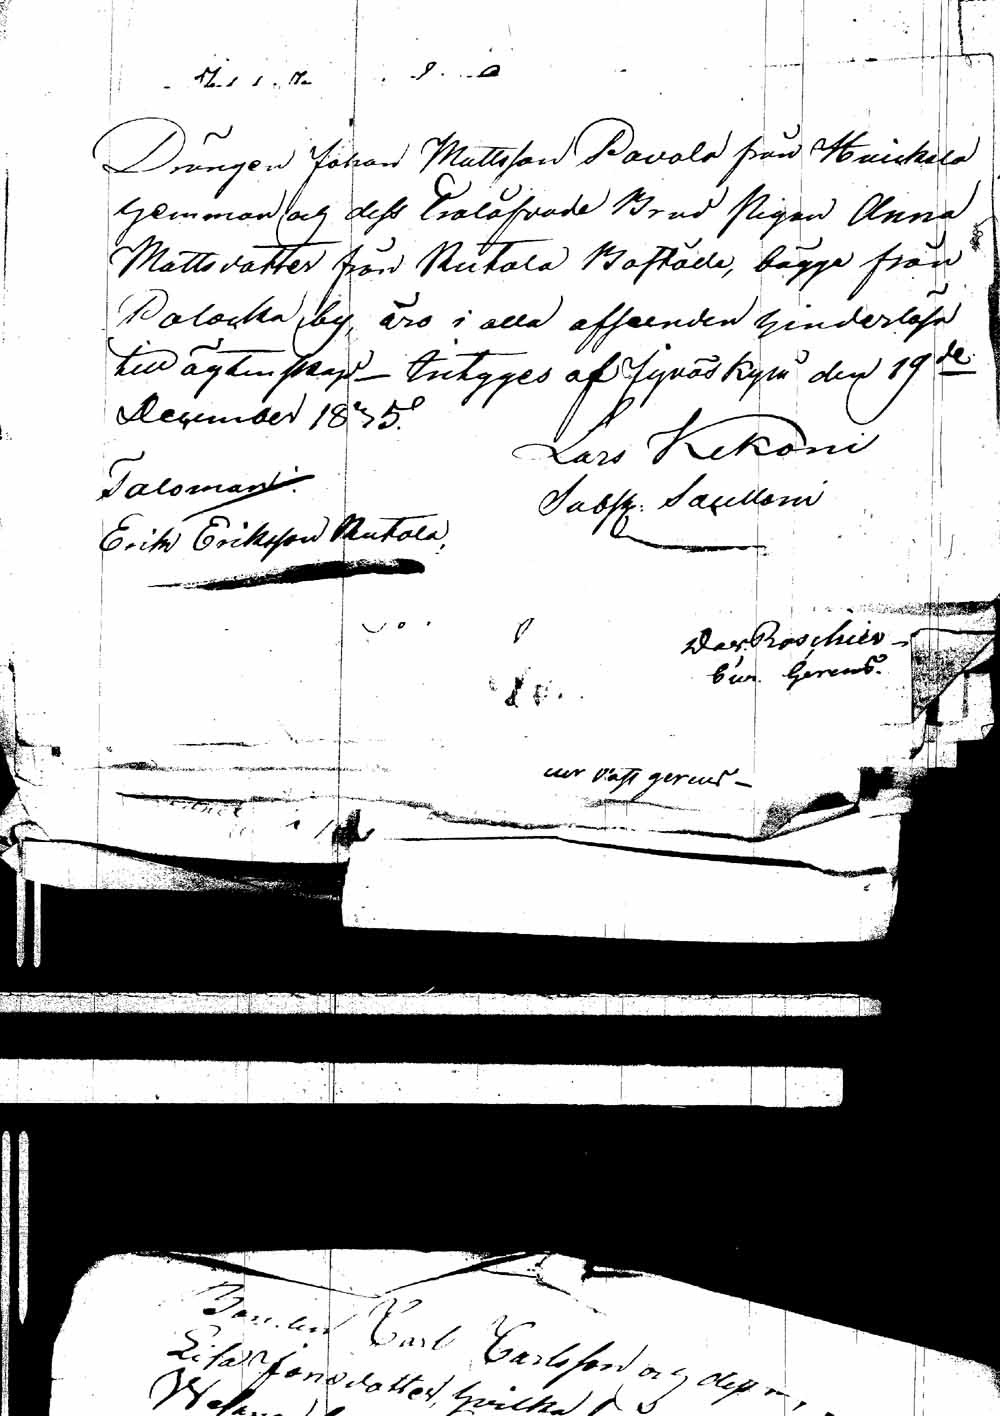 Drängen Johan Mattsson Pavola från Huickala
hemman och dess Trolåfvade Brud Pigan Anna
Mattsdotter från Rutola Boställe, bägge från
Palocka by, äro i alla afseenden hinderlösa
till ägtenskap — Intygges af Jyväskylä den 19de
December 1875.
Lars Kekoni
Talomani
Erik Eriksson Rutola,
Dav. Roschier
vast gerens —
Bonden Carl Carlsson och dess
Lisa Jonsdotter, hvilka